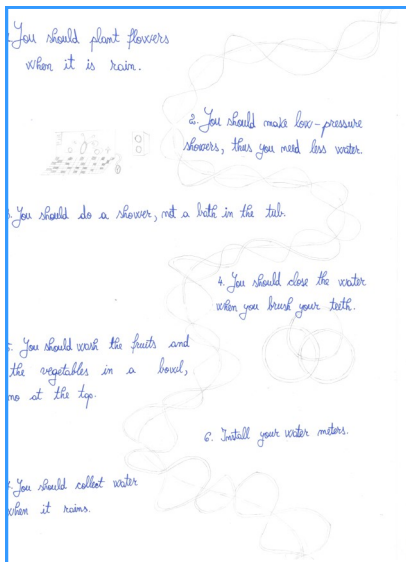 1. You should plant flowers
when it is rain.
2. You should make low-pressure
showers, thus you need less water.
3. You should do a shower, not a bath in the tub.
4. You should close the water
when you brush your teeth.
5. You should wash the fruits and
the vegetables in a bowl,
no at the top.
6. Install your water meters.
7. You should collect water
when it rains.